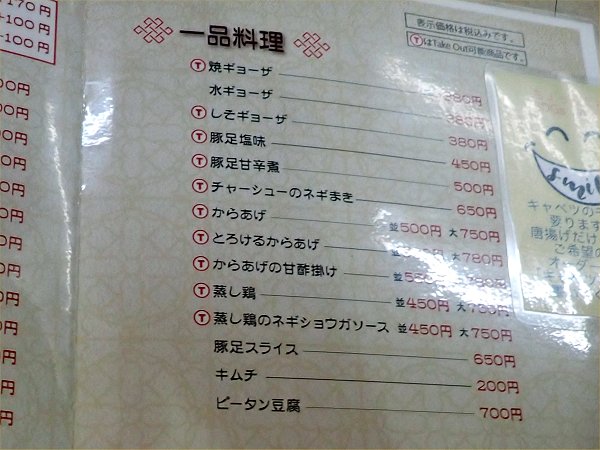 170円
+100円
-100円
一品料理
表示価格は税込みです。
ⓉはTake Out可能商品です。
Ⓣ焼ギョーザ
水ギョーザ 380円
Ⓣしそギョーザ 380円
Ⓣ豚足塩味 450円
Ⓣ豚足甘辛煮 500円
Ⓣチャーシューのネギまき 650円
Ⓣからあげ 並500円 大750円
Ⓣとろけるからあげ 大780円
Ⓣからあげの甘酢掛け
Ⓣ蒸し鶏 並450円
Ⓣ蒸し鶏のネギショウガソース 並450円 大750円
豚足スライス 650円
キムチ 200円
ピータン豆腐 700円
キャベツの
変ります
唐揚げだけ
ご希望の